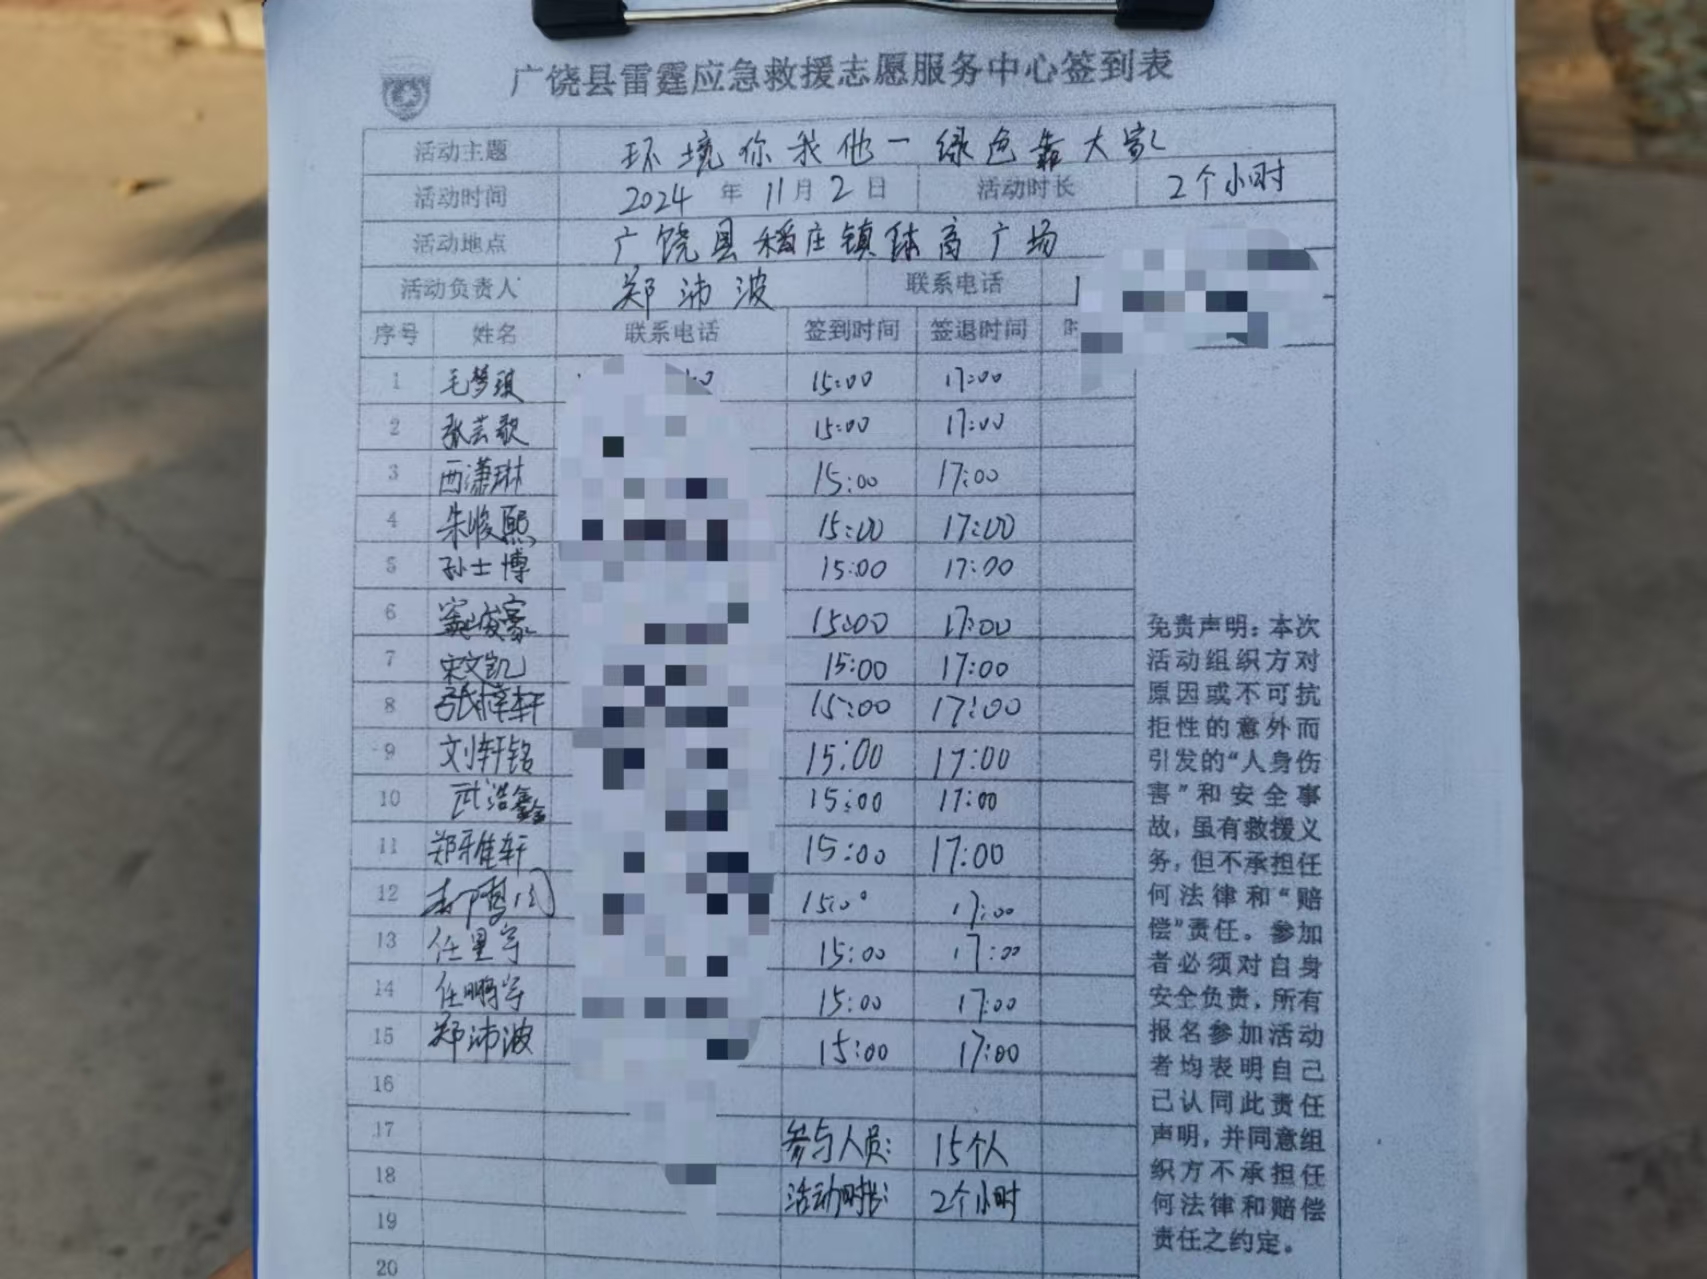 广饶县雷霆应急救援志愿服务中心签到表
活动主题 环境你我他一绿色靠大家
活动时间 2024 年 11 月 2 日 活动时长 2个小时
活动地点 广饶县稻庄镇体育广场
活动负责人 郑沛波 联系电话 1
序号 姓名 联系电话 签到时间 签退时间 时
1 毛梦琪 15:00 17:00
2 张芸歌 15:00 17:00
3 西潇琳 15:00 17:00
4 朱峻熙 15:00 17:00
5 孙士博 15:00 17:00
6 15:00 17:00
7 宋文凯 15:00 17:00
8 张梓轩 15:00 17:00
9 刘轩铭 15:00 17:00
10 武浩鑫 15:00 17:00
11 郑雅轩 15:00 17:00
12 15:00 17:00
13 任星宇 15:00 17:00
14 任鹏宇 15:00 17:00
15 郑沛波 15:00 17:00
16
17 参与人员: 15个人
18 活动时长: 2个小时
19
20
免责声明：本次
活动组织方对
原因或不可抗
拒性的意外而
引发的“人身伤
害”和安全事
故，虽有救援义
务，但不承担任
何法律和“赔
偿”责任。参加
者必须对自身
安全负责，所有
报名参加活动
者均表明自己
己认同此责任
声明，并同意组
织方不承担任
何法律和赔偿
责任之约定。